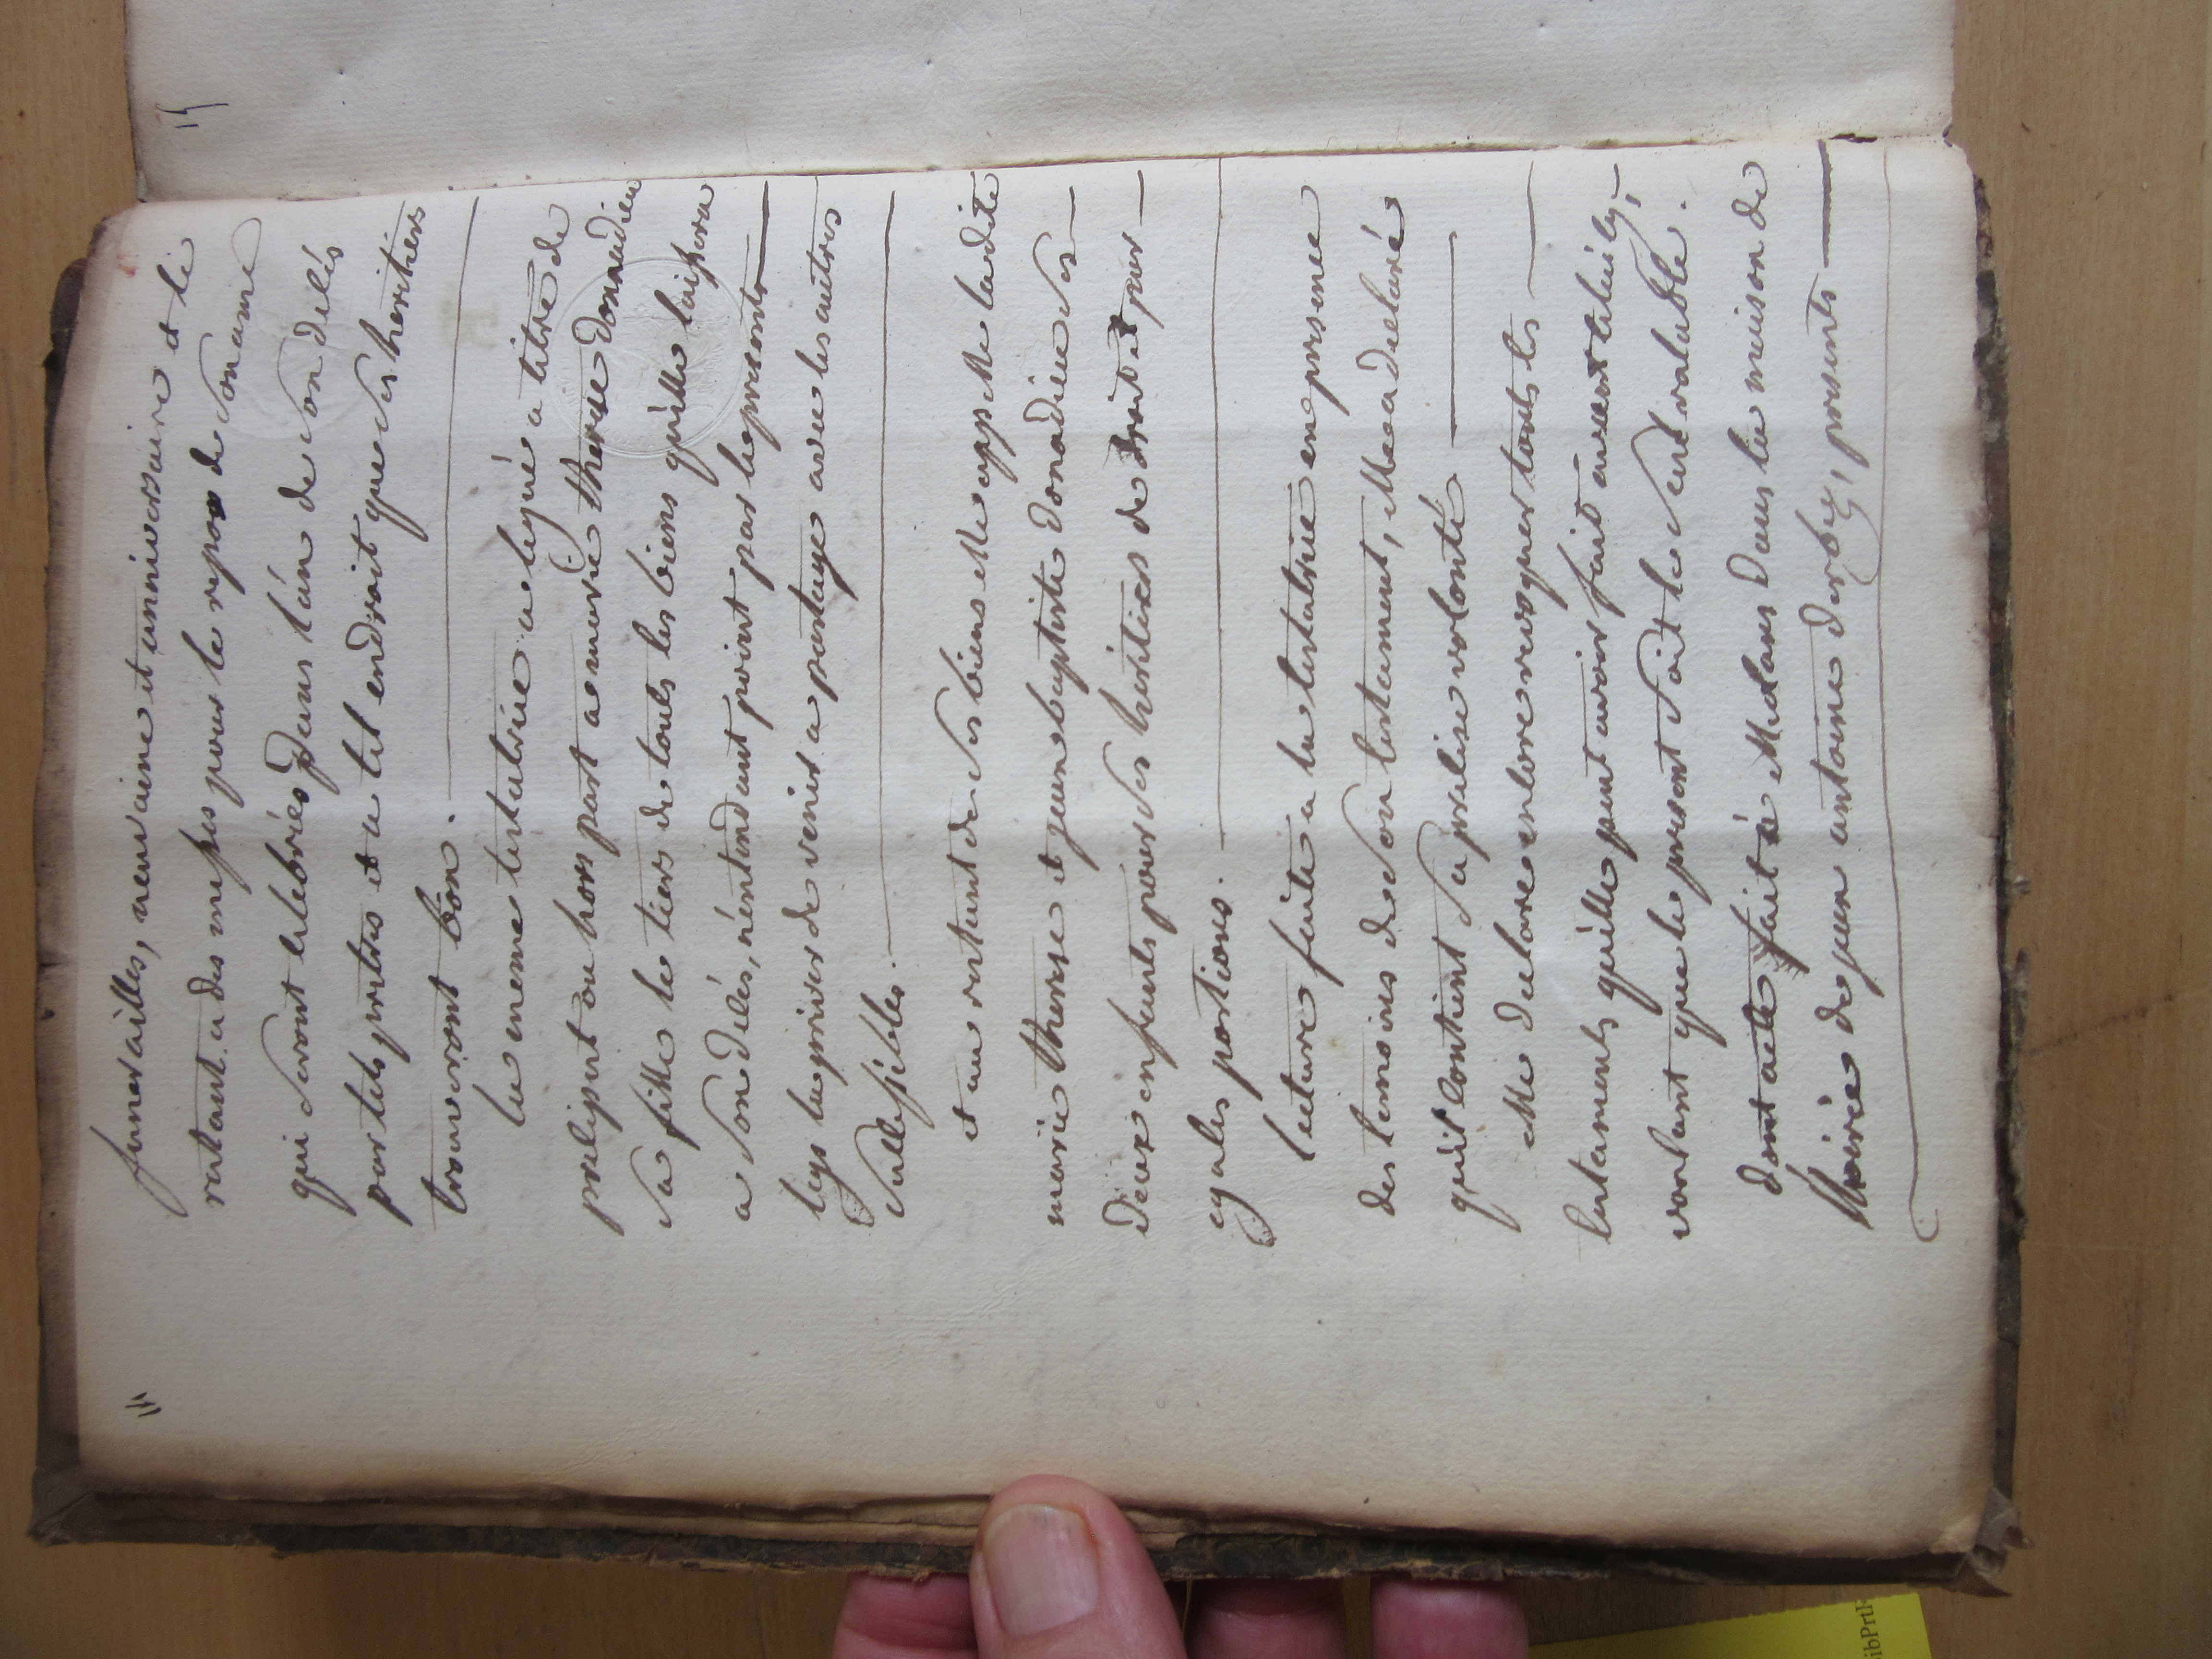 funerailles, neuvaine et anniversaire et le
restant a des messes pour le repos de son ame
qui seront celebrées dans l'an de son délés
par tels pretres et a tel endroit que ses heritiers
trouveront bon.
la meme testatrice a legué a titre de
preliput ou hors part a marie therese donnadieu
sa fille le tiers de touts les biens qu'elle laissera
a son délés, n'entendant point par le present
legs la priver de venir a partage avec les autres
sullessibles.
et au restant de ses biens elle appelle ladite
marie therese et jean baptiste donadieu ses
deux enfants pour ses heritiers de droit et par
egales portions.
lecture faite a la testatrice en presence
des temoins de son testament, elle a declaré
qu'il contient sa prelise volonté
elle declare enlore revoquer touts les
testaments qu'elle peut avoir fait avant celui cy,
voulant que le present soit le seul valable.
dont acte fait à dans la maison de
de jean antoine presents
ibPrtI